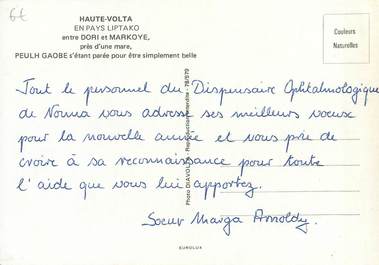 6€
HAUTE-VOLTA
EN PAYS LIPTAKO
entre DORI et MARKOYE,
près d'une mare,
PEULH GAOBE s'étant parée pour être simplement belle
Couleurs
Naturelles
Tout le personnel du Dispensaire Ophtalmologique
de Nouna vous adresse ses meilleurs voeux
pour la nouvelle année et vous prie de
croire à sa reconnaissance pour toute
l'aide que vous lui apportez.
Soeur Marga Arnoldy.
Photo DIAVOLTA - Reproduction interdite - 78/579
EUROLUX